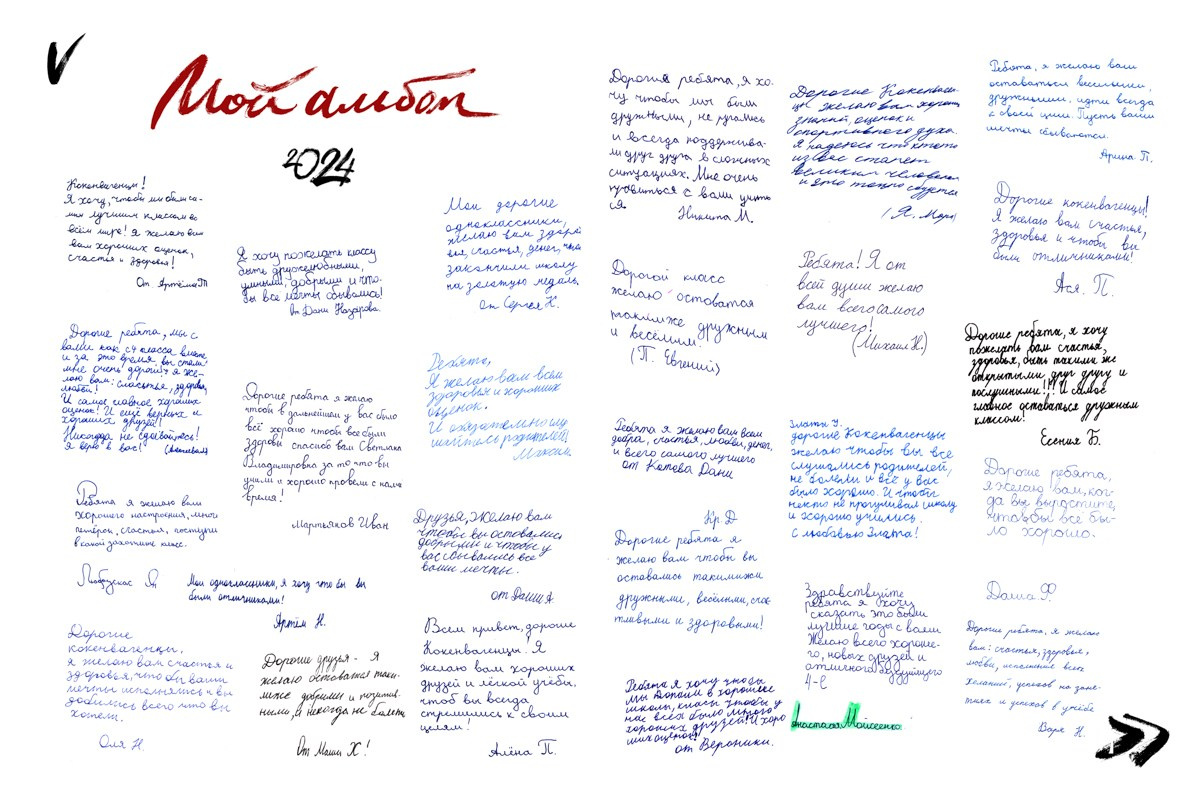 Мой альбом
2024
Кокенвагенцы!
Я хочу, чтобы мы были са-
мым лучшим классом во
всём мире! Я желаю вам
вам хороших оценок,
счастья и здоровья!
От Артёма Т
Я хочу пожелать классу
быть дружелюбными,
умными, добрыми и что-
бы все мечты сбывались!
От Дани Назарова.
Мои дорогие
одноклассники,
желаю вам здоро
вья, счастья, денег, чтобы
закончили школу
на золотую медаль.
От Сергея К.
Дорогие ребята, мы с
вами как с 1 класса вместе
и за это время вы стали
мне очень дороги! Я же-
лаю вам: счастья, здоровья,
любви!
И самое главное хороших
оценок! И ещё верных и
хороших друзей!
Никогда не сдавайтесь!
Я верю в вас!
Дорогие ребята я желаю
чтоби в дальнейшем у вас было
всё хорошо чтоб все были
здоровы спасибо вам Светлана
Владимировна за то что вы
учили и хорошо провели с нами
время!
Мартьяков Иван
Ребята,
Я желаю вам всем
здоровья и хороших
оценок.
И обязательно слу
шайтесь родителей!
Максим
Ребята я желаю вам
хорошего настроения, много
пятёрок, счастья, поступи
в какой захотите класс.
Мои одноглассники, я хочу что бы вы
были отличниками!
Артём Н.
Друзья, желаю вам
чтобы вы оставались
добрыми и чтобы у
вас сбывались все
ваши мечты.
от Даши А
Дорогие
кокенвагенцы,
я желаю вам счастья и
здоровья, что бы ваши
мечты исполнялись и вы
добились всего что вы
хотели.
Оля Н.
Дорогие друзья - Я
желаю оставаться таки-
миже добрыми и позитив-
ными, и никогда не болеть
От Маши Х!
Всем привет, дорогие
Кокенвагенцы. Я
желаю вам хороших
друзей и лёгкой учёбы,
чтоб вы всегда
стремились к своим
целям!
Алёна П.
Дорогие ребята, я хо-
чу чтобы мы были
дружными, не ругались
и всегда поддержива-
ли друг друга в сложных
ситуациях. Мне очень
нравиться с вами учить
ся.
Никита М.
Дорогой класс
желаю остоватся
такимже дружным
и весёлым.
(П. Евгений)
Ребята я желаю вам всем
добра, счастья, любви, денег,
и всего самого лучшего
от Котова Дани
Кр. Д
Дорогие ребята я
желаю вам чтобы вы
оставались такимижи
дружными, весёлыми, счас
тливыми и здоровыми!
Ребята я хочу чтобы
мы попали в хорошие
школы, классы чтобы у
нас всех было много
хороших друзей! И хоро
ших оценок!
от Вероники.
Дорогие Кокенваген-
цы желаю вам хороших
знаний, оценок и
спортивного духа.
Я надеюсь что ктото
из вас станет
великим человеком
и это точно сбудется
(Я. Марк)
Ребята! Я от
всей души желаю
вам всего самого
лучшего!
(Михаил Н.)
Злата У.
дорогие Кокенвагенцы
желаю чтобы вы все
слушались родителей,
не болели и всё у вас
было хорошо. И чтобы
некто не прогуливал школу
и хорошо учились.
С любовью Злата!
Здравствуйте
ребята я хочу
сказать это были
лучшие годы с вами
Желаю всего хороше-
го, новых друзей и
отличного будущего
4-С
Анастасия Моисеенко.
Ребята, я желаю вам
оставаться весёлыми,
дружными, идти всегда
к своей цели. Пусть ваши
мечты сбываются.
Арина П.
Дорогие кокенвагенцы!
Я желаю вам счастья,
здоровья и чтобы вы
были отличниками!
Ася. П.
Дорогие ребята, я хочу
пожелать вам счастья,
здоровья, быть такими же
открытыми друг другу и
послушными!!! И самое
главное оставаться дружным
классом!
Есения Б.
Дорогие ребята,
я желаю вам, ког-
да вы вырастите,
чтобы всё бы-
ло хорошо.
Даша Ф.
Дорогие ребята, я желаю
вам: счастья, здоровья,
любви, исполнение всех
желаний, успехов на заня-
тиях и успехов в учёбе
Варя Н.